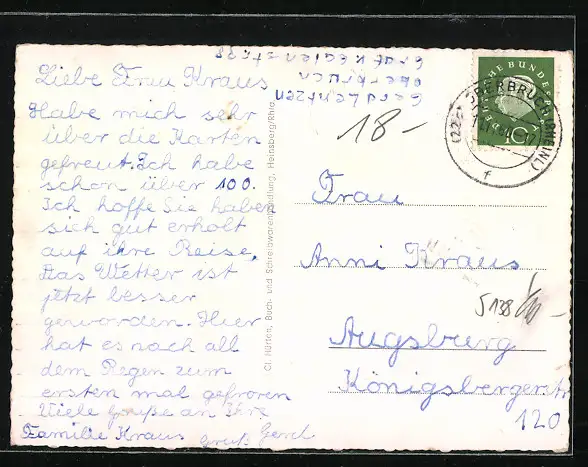 Liebe Frau Kraus
Habe mich sehr
über die Karten
gefreut. Ich habe
schon über 100.
Ich hoffe Sie haben
sich gut erholt
auf ihre Reise.
Das Wetter ist
jetzt besser
geworden. Hier
hat es nach all
dem Regen zum
ersten mal gefroren
Viele Grüße an Ihre
Familie Kraus
Gruß Gerd
Gerd Lentzen
Oberbruch
Cl. Hürten, Buch- und Schreibwarenhandlung, Heinsberg/Rhld.
18-
DEUTSCHE BUNDESPOST
10
OBERBRUCH (RHEINL)
f
Frau
Anni Kraus
5138
Augsburg
Königsbergerstr
120